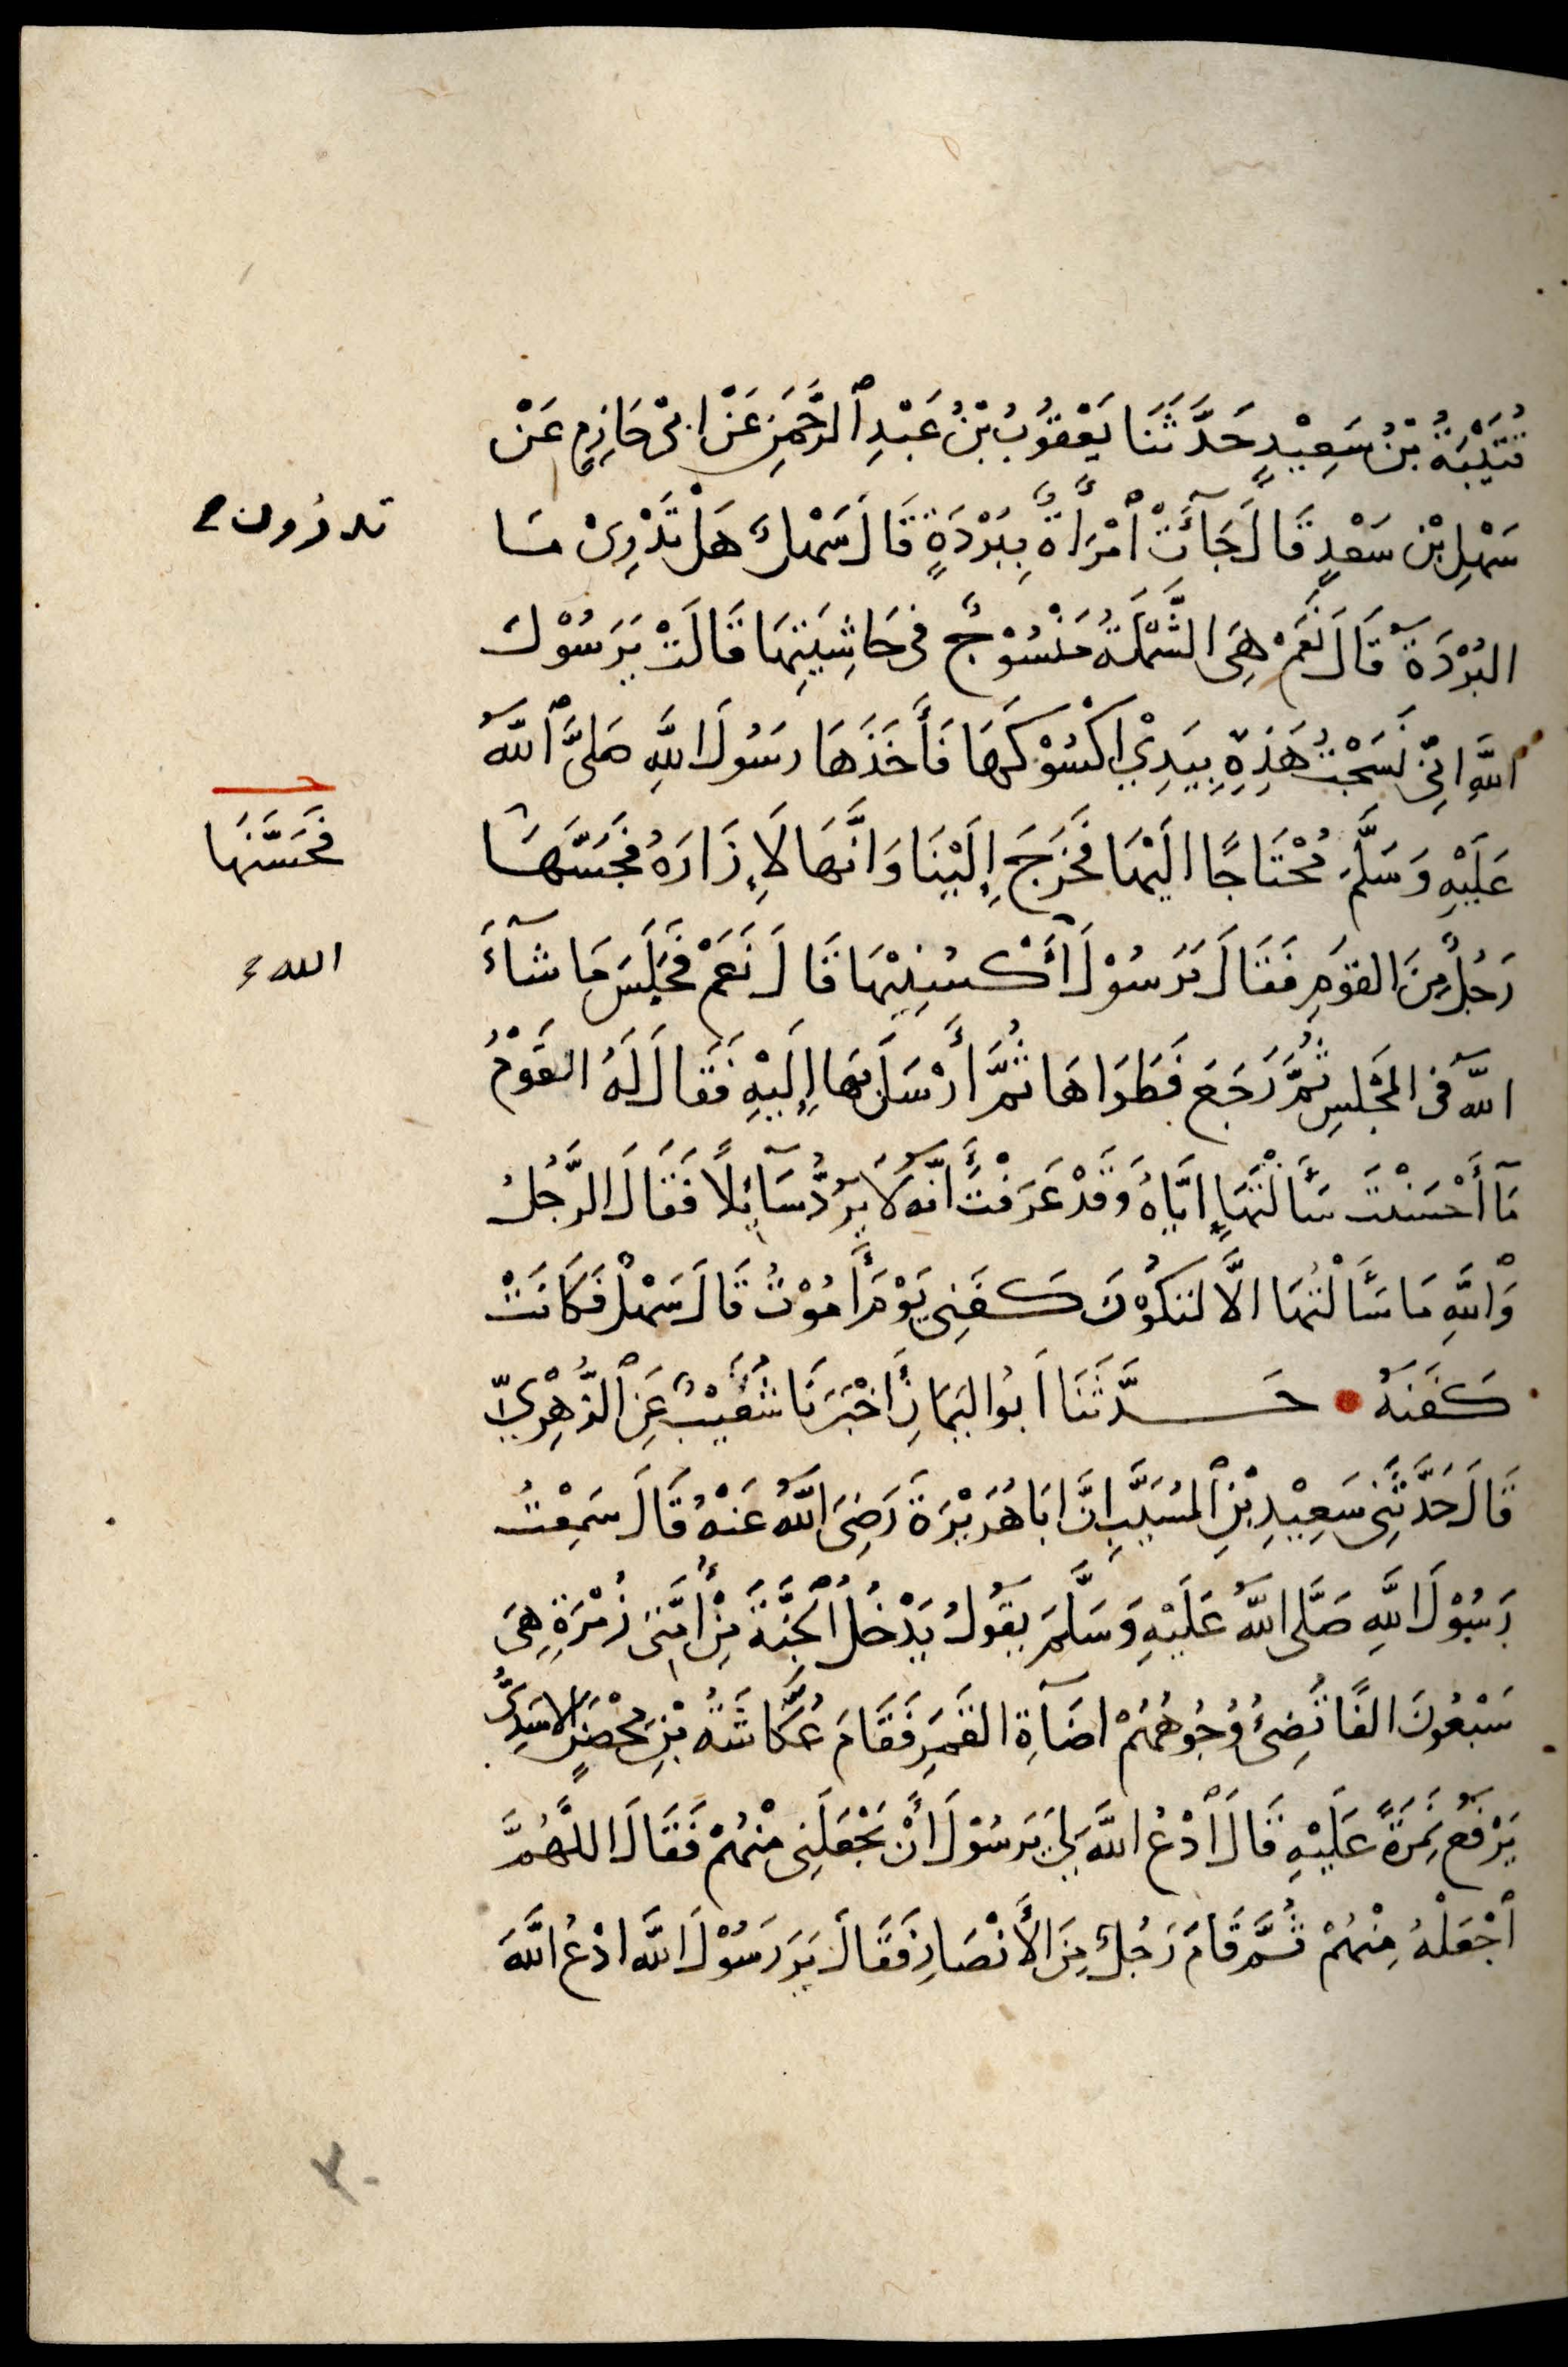 قُتَيْبَةُ بْنُ سَعِيْدٍ حَدَّثَنَا يَعْقُوْبُ بْنُ عَبْدِ ٱلرَّحْمَنِ عَنْ ابىْ حَازِمٍ عَنْ
سَهْلِ بْنِ سَعْدٍ قَالَ جَآئَتْ ٱمْرَأَةٌ بِبُرْدَةٍ قَالَ سَهْلٌ هَلْ تَدْرِىْ مَا
تدرُون
البُرْدَةُ قَالَ نَعَمْ هِىَ الشَّمْلَةُ مَنْسُوْجٌ فى حَاشِيَتِهَا قَالَتْ يَرَسُوْلَ
ٱللَّهِ انِّى نَسَجْتُ هَذِهِ بِيَدِيْ اكْسُوْكَهَا فَأَخَذَهَا رَسُولُ اللَّهِ صَلىَّ ٱللَّهُ
عَلَيْهِ وَسَلَّمَ مُحْتَاجًا الَيْهَا فَخَرَجَ إِلَيْنَا وَانَّهَا لَإِزَارَهُ فجَسَّهَا
فَحَسَّنَهَا
رَجُلٌ مِنَ القَوْمِ فَقَالَ يَرَسُوْلَ ٱكْسُنِيْهَا قَالَ نَعَمْ فَجَلَسَ مَا شآءَ
الله
اللَّهُ فى المَجْلِسِ ثُمَّ رَجَعَ فَطَوَاهَا ثُمَّ أَرْسَلَ بهَا إِلَيْهِ فَقَالَ لَهُ القَوْمُ
مَآ أَحْسَنْتَ سَأَلْتَهَا إِيَّاهُ وَقَدْ عَرَفْتَ أَنَّهُ لَا يَرُدُّ سَآئِلًا فَقَالَ الرَّجُلُ
وَاللَّهِ مَا سَأَلْتُهَا الَّا لتَكُوْنَ كَفَنِى يَوْمَ أَمُوْتُ قَالَ سَهْلٌ فَكَانَتْ
كَفَنَهُ • حَدَّثَنَا اَبُو اليَمَانِ أَخْبَرَنَا شُعَيْبٌ عَنِ ٱلزُّهْرِيِّ
قَالَ حَدَّثَنِى سَعِيْدِ بْنِ ٱلمُسَيَّبِ انَّ ابَا هُرَيْرَةَ رَضِىَ اللَّهُ عَنْهُ قَالَ سَمِعْتُ
رَسُوْلَ اللَّهِ صَلَّى اللَّهُ عَلَيْهِ وَسَلَّمَ يَقُولُ يَدْخُلُ ٱلجَنَّةَ مِنْ أُمَّتِى زُمْرَةٌ هِىَ
سَبْعُونَ الفًا تُضِىءُ وُجُوهُهُمْ اضَآةِ القَمَرِ فَقَامَ عُكَّاشَةُ بْنِ مِحْصَنٍ الاسَدِىُّ
يَرْفَعُ نَمِرَةً عَلَيْهِ قَالَ ٱدْعُ اللَّهَ لِيَ يَرَسُوْلَ أَنْ يَجْعَلَنِى مِنْهُمْ فَقَالَ اللَّهُمَّ
ٱجْعَلْهُ مِنْهُمْ ثُمَّ قَامَ رَجُلٌ مِنَ الأَنْصَارِ فَقَالَ يَرَسُوْلَ اللَّهِ ادْعُ اللَّهَ
٢٠